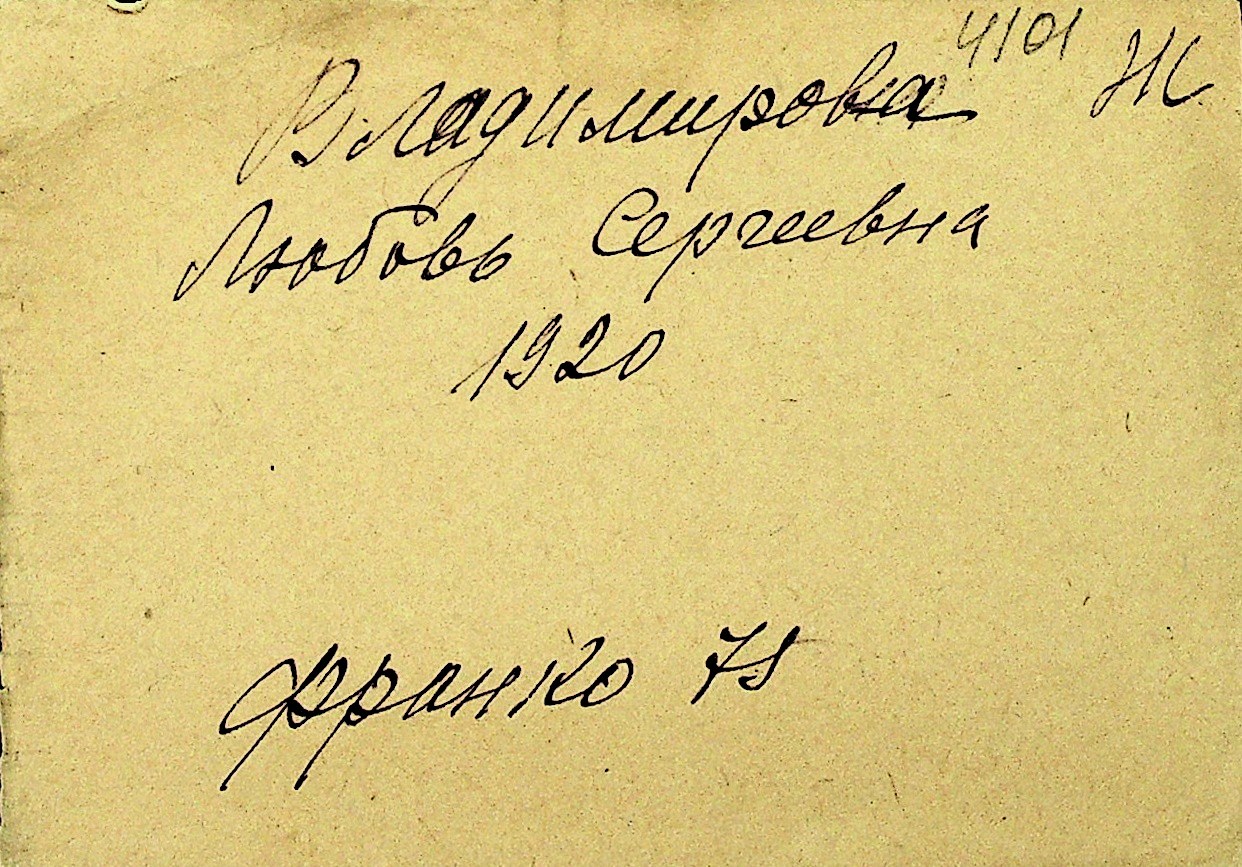 4101 Ж
Владимирова
Любовь Сергеевна
1920
Франко 75